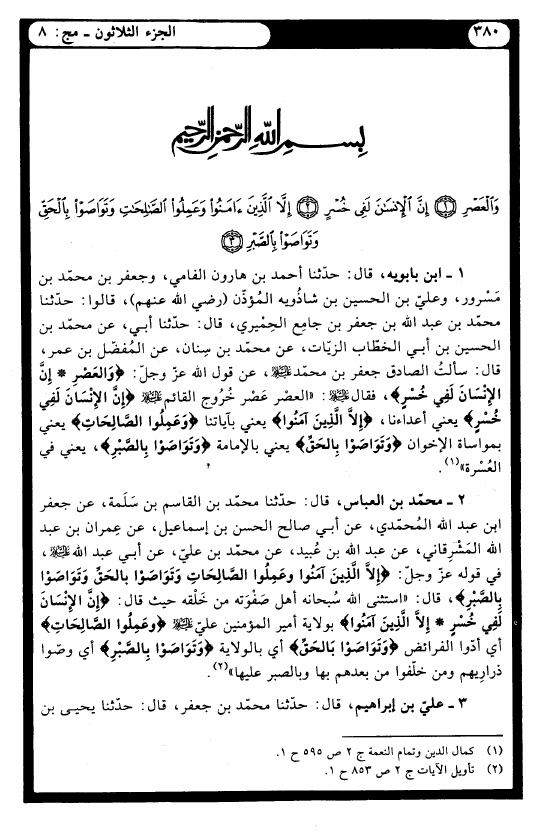 ٣٨٠
الجزء الثلاثون ـ مج: ٨
بسم الله الرحمن الرحيم
وَٱلْعَصْرِ ﴿١﴾ إِنَّ ٱلْإِنسَٰنَ لَفِى خُسْرٍ ﴿٢﴾ إِلَّا ٱلَّذِينَ ءَامَنُوا۟ وَعَمِلُوا۟ ٱلصَّٰلِحَٰتِ وَتَوَاصَوْا۟ بِٱلْحَقِّ
وَتَوَاصَوْا۟ بِٱلصَّبْرِ ﴿٣﴾
١ ـ ابن بابويه، قال: حدّثنا أحمد بن هارون الفامي، وجعفر بن محمّد بن
مَسْرور، وعليّ بن الحسين بن شاذُويه المُؤدّن (رضي الله عنهم)، قالوا: حدّثنا
محمّد بن عبد الله بن جعفر بن جامِع الحِمْيري، قال: حدّثنا أبي، عن محمّد بن
الحسين بن أبي الخطّاب الزيّات، عن محمّد بن سِنان، عن المُفضّل بن عمر،
قال: سألتُ الصادق جعفر بن محمّد عليه السلام، عن قول الله عزّ وجلّ: ﴿وَالعَصْرِ * إِنَّ
الإِنْسَانَ لَفِي خُسْرٍ﴾، فقال عليه السلام: «العصْر عَصْر خُرُوج القائم عليه السلام ﴿إِنَّ الإِنْسَانَ لَفِي
خُسْرٍ﴾ يعني أعداءنا، ﴿إِلاَّ الَّذِينَ آمَنُوا﴾ يعني بآياتنا ﴿وَعَمِلُوا الصَّالِحَاتِ﴾ يعني
بمواساة الإخوان ﴿وَتَوَاصَوْا بِالحَقِّ﴾ يعني بالإمامة ﴿وَتَوَاصَوْا بِالصَّبْرِ﴾، يعني في
العُسْرة»(١).
٢ ـ محمّد بن العباس، قال: حدّثنا محمّد بن القاسم بن سَلَمة، عن جعفر
ابن عبد الله المُحمّدي، عن أبي صالح الحسن بن إسماعيل، عن عِمران بن عبد
الله المَشْرِقاني، عن عبد الله بن عُبيد، عن محمّد بن عليّ، عن أبي عبد الله عليه السلام،
في قوله عزّ وجلّ: ﴿إِلاَّ الَّذِينَ آمَنُوا وعَمِلُوا الصَّالِحَاتِ وَتَوَاصَوْا بالحَقِّ وَتَوَاصَوْا
بِالصَّبْرِ﴾، قال: «استثنى الله سُبحانه أهل صَفْوَته من خَلْقه حيث قال: ﴿إِنَّ الإِنْسَانَ
لَفِي خُسْرٍ * إِلاَّ الَّذِينَ آمَنُوا﴾ بولاية أمير المؤمنين عليّ عليه السلام ﴿وعَمِلُوا الصَّالِحَاتِ﴾
أي أدّوا الفرائض ﴿وَتَوَاصَوْا بَالحَقِّ﴾ أي بالولاية ﴿وَتَوَاصَوْا بِالصَّبْرِ﴾ أي وصّوا
ذراريهم ومن خلّفوا من بعدهم بها وبالصبر عليها»(٢).
٣ ـ عليّ بن إبراهيم، قال: حدّثنا محمّد بن جعفر، قال: حدّثنا يحيى بن
(١) كمال الدين وتمام النعمة ج ٢ ص ٥٩٥ ح ١.
(٢) تأويل الآيات ج ٢ ص ٨٥٣ ح ١.